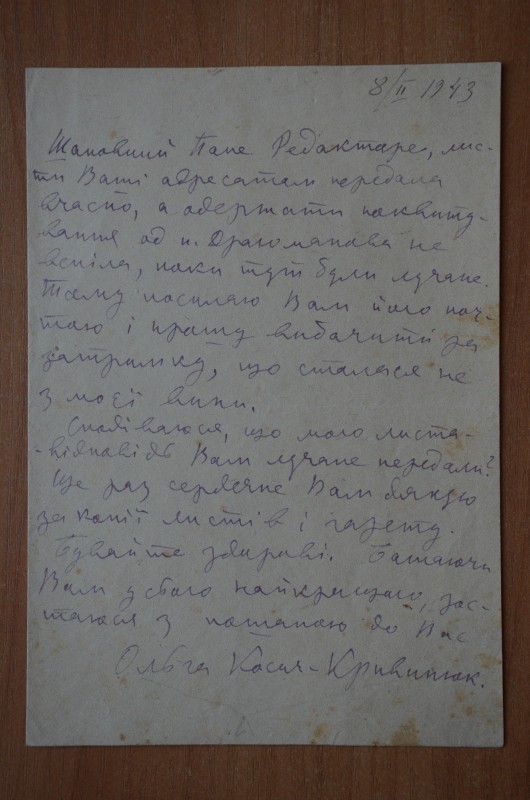 8/II 1943
Шановний Пане Редакторе, лис-
ти Ваші адресатам передала
вчасно, а одержати поквиту-
вання од п. Драгоманова не
вспіла, поки тут були лучане.
Тому посилаю Вам його поч-
тою і прошу вибачити за
затримку, що сталася не
з моєї вини.
Сподіваюся, що мого листа-
-відповідь Вам лучане передали?
Ще раз сердечне Вам дякую
за копії листів і газету.
Бувайте здорові. Бажаючи
Вам усього найкращого, зос-
таюся з пошаною до Вас
Ольга Косач-Кривинюк.